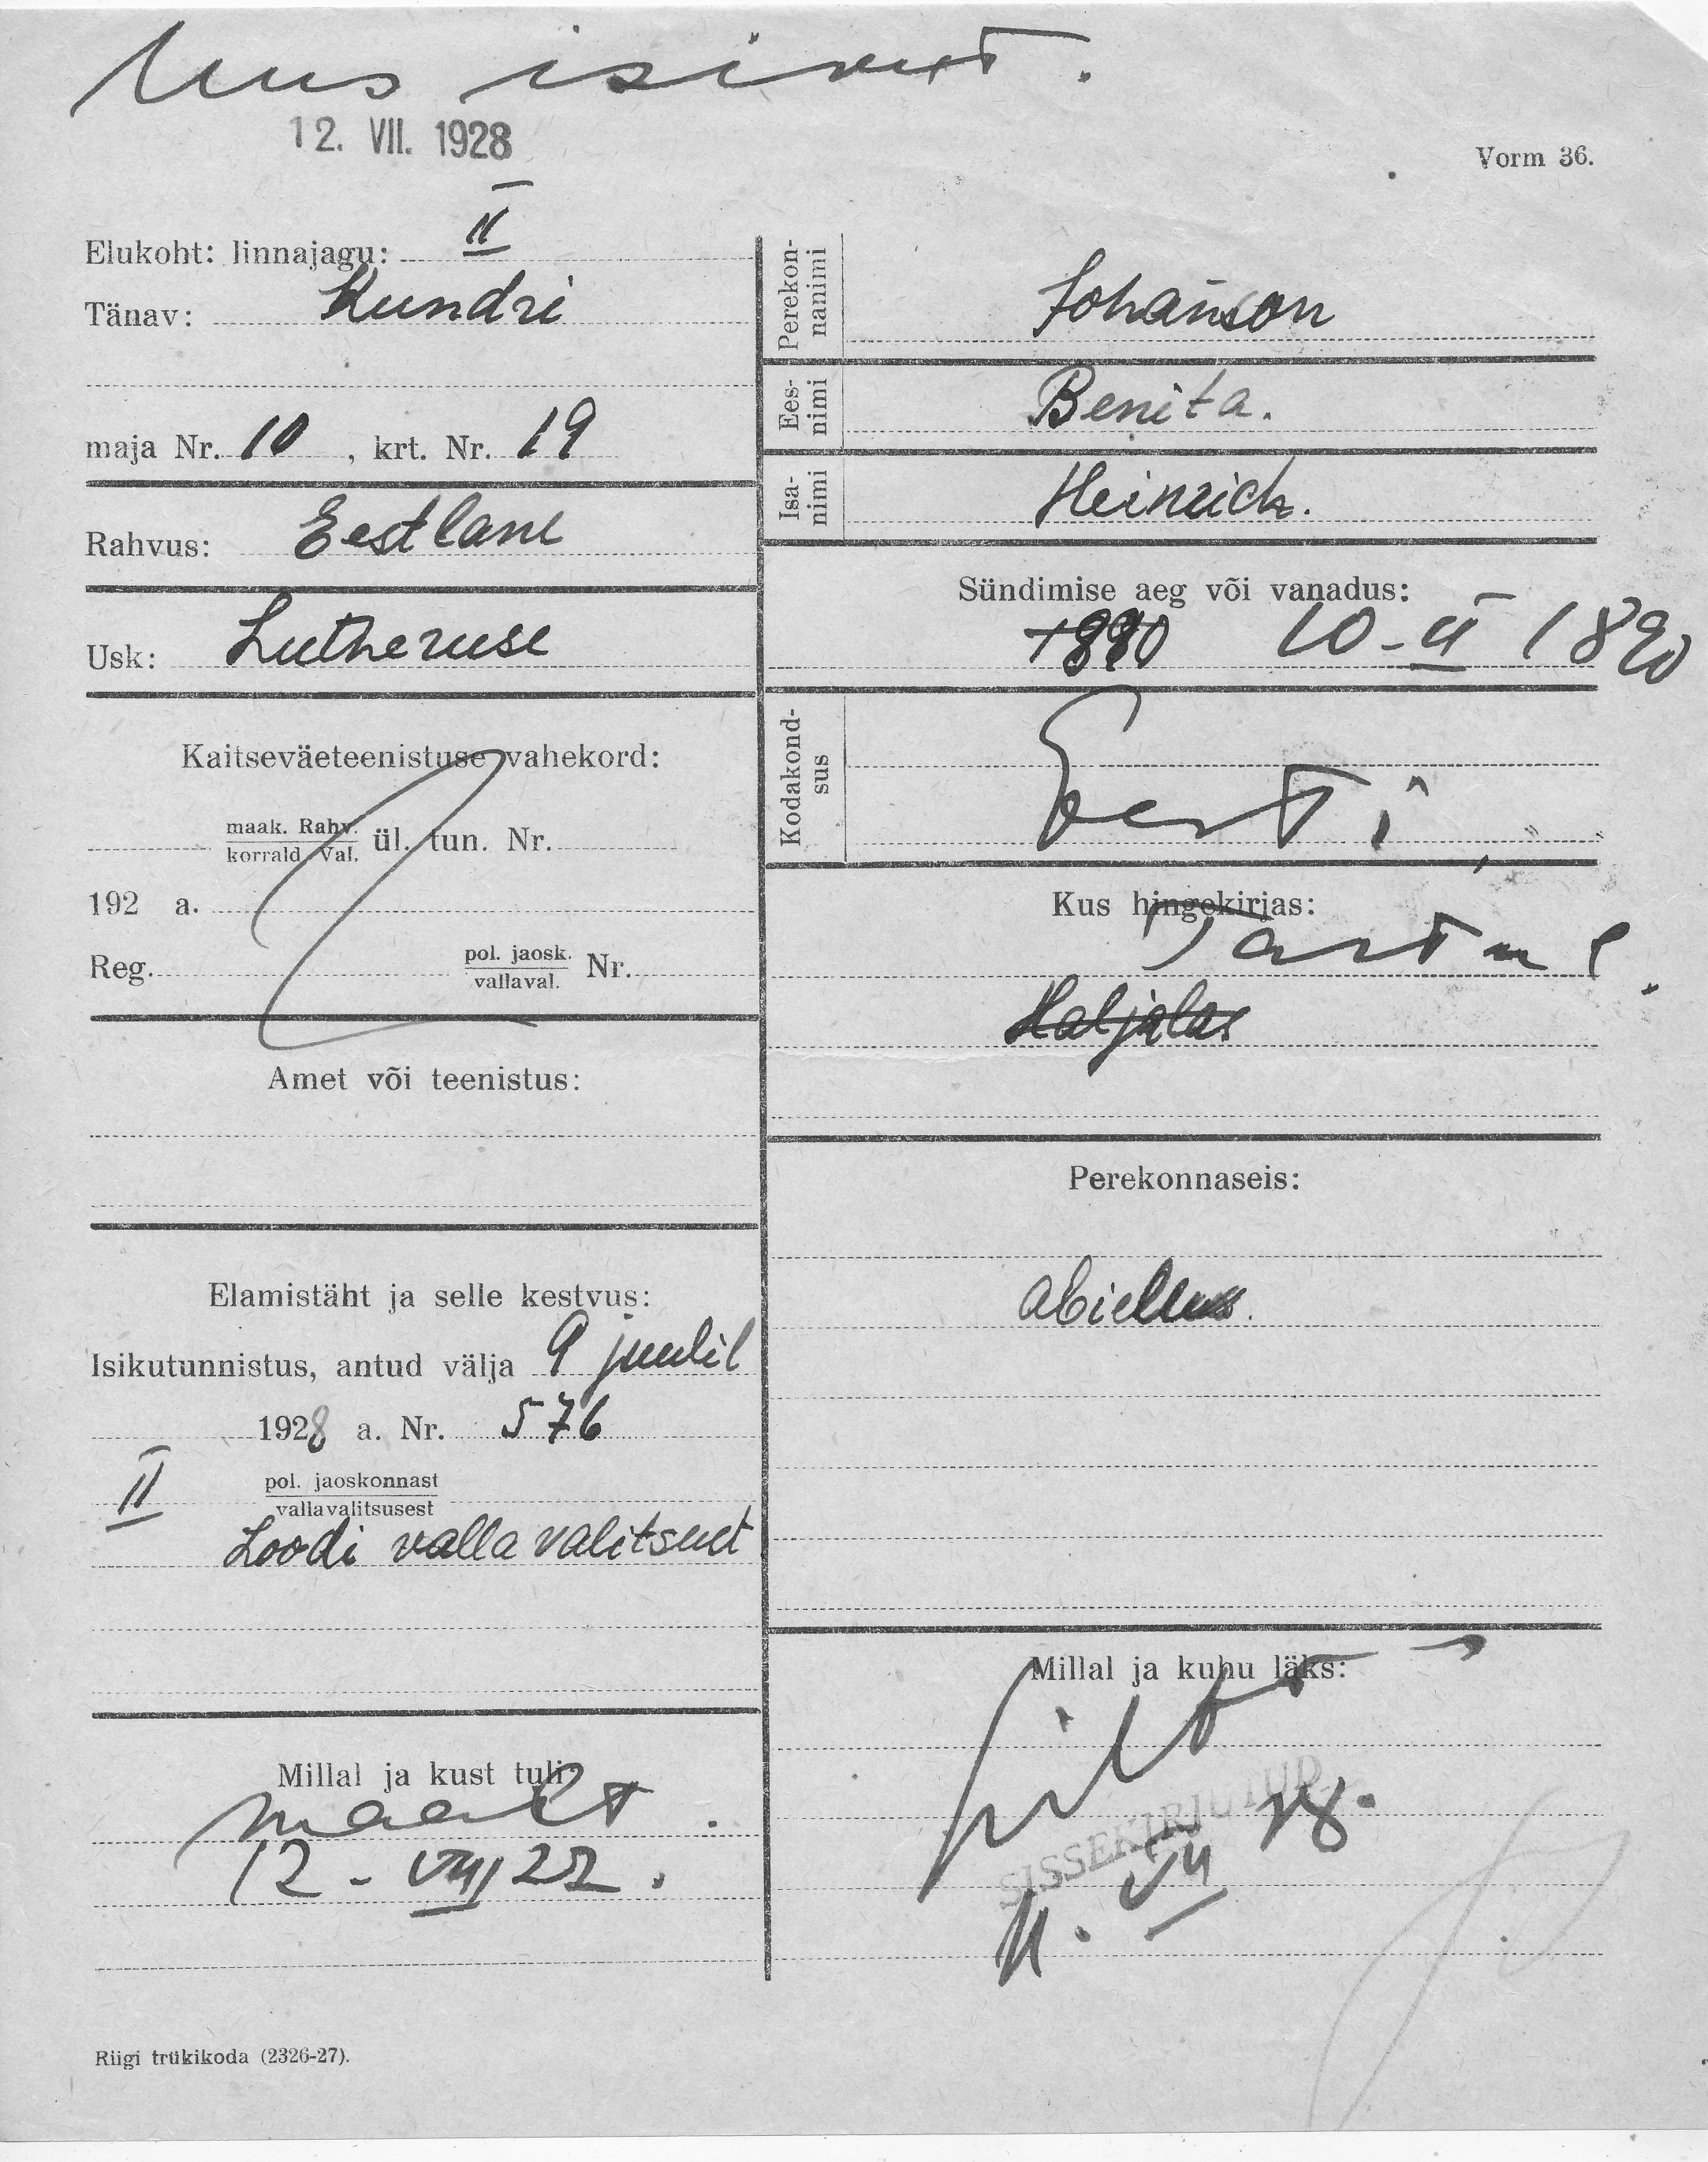 Uus isikut.
12. VII. 1928
Vorm 36.
Elukoht: linnajagu: II
Tänav: Kundri
maja Nr. 10, krt. Nr. 19
Rahvus: Eestlane
Usk: Lutheruse
Kaitseväeteenistuse vahekord:
maak. Rahv.
korrald. Val. ül. tun. Nr.
192 a.
Reg. pol. jaosk. Nr.
vallaval.
Amet või teenistus:
Elamistäht ja selle kestvus:
Isikutunnistus, antud välja 9 juulil
1928 a. Nr. 576
II pol. jaoskonnast
vallavalitsusest
Loodi valla valitsust
Millal ja kust tuli:
maalt.
12 - VIII 22.
Perekon-
nanimi
Johanson
Ees-
nimi
Benita.
Isa-
nimi
Heinrich.
Sündimise aeg või vanadus:
1890 10-II 1890
Kodakond-
sus
Eesti
Kus hingekirjas:
Tartus.
Haljalas
Perekonnaseis:
abiellus.
Millal ja kuhu läks:
SISSEKIRJUTUD
11. VII 28.
Riigi trükikoda (2326-27).